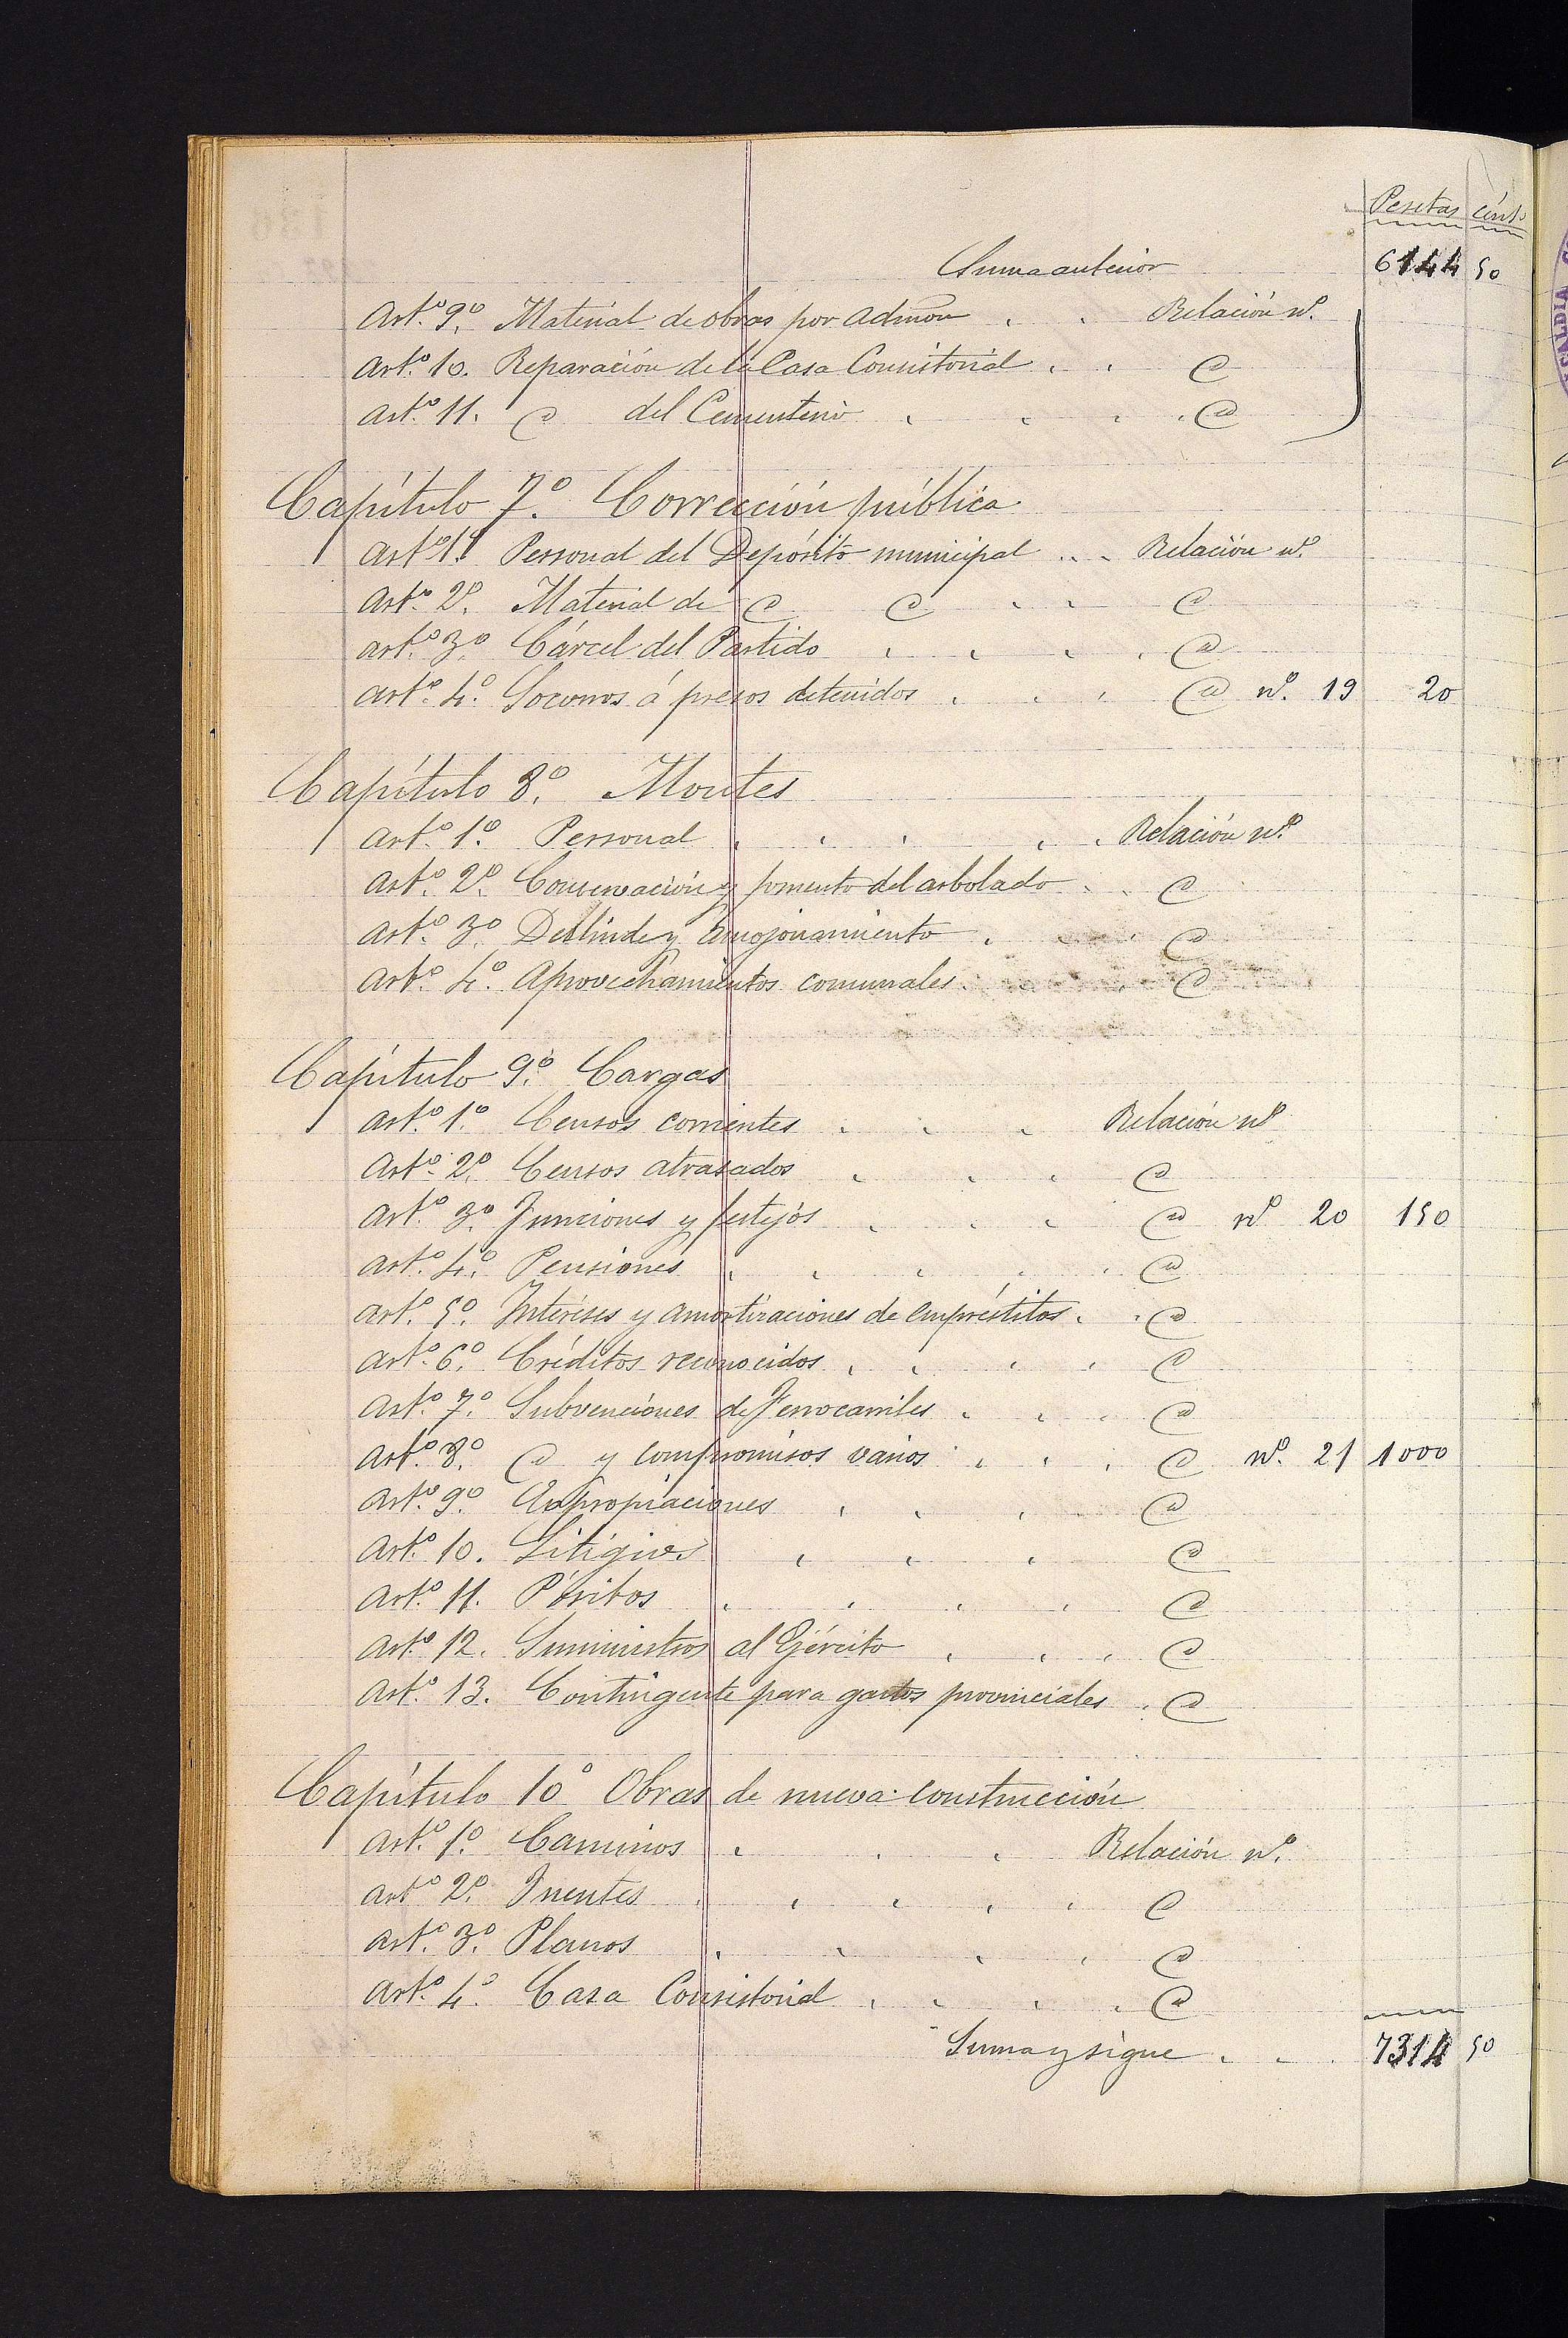 Pesetas cénts
Suma anterior 6144 50
Artº 9º Material de obras por Admon . . Relación nº
Artº 10. Reparación de la Casa Consistorial . . @
Artº 11. @ del Cementerio . . . . @
Capítulo 7º Corrección pública
Artº 1º Personal del Depósito municipal . . . Relación nº
Artº 2º Material de @ @ . . @
Artº 3º Cárcel del Partido . . . . @
Artº 4º Socorros á presos detenidos . . . @ nº 19 20
Capítulo 8º Montes
Artº 1º Personal . . . . . Relación nº
Artº 2º Conservación y fomento del arbolado . . @
Artº 3º Deslinde y amojonamiento . . . @
Artº 4º Aprovechamientos comunales . . . @
Capítulo 9º Cargas
Artº 1º Censos corrientes . . . Relación nº
Artº 2º Censos atrasados . . . @
Artº 3º Funciones y festejos . . . @ nº 20 150
Artº 4º Pensiones . . . . . @
Artº 5º Intereses y amortizaciones de empréstitos . . @
Artº 6º Créditos reconocidos . . . . @
Artº 7º Subvenciones de Ferrocarriles . . . @
Artº 8º @ y compromisos varios . . . . @ nº 21 1000
Artº 9º Expropiaciones . . . . @
Artº 10. Litigios . . . @
Artº 11. Pósitos . . . . @
Artº 12. Suministros al Ejército . . . @
Artº 13. Contingente para gastos provinciales . @
Capítulo 10º Obras de nueva construcción
Artº 1º Caminos . . . Relación nº
Artº 2º Fuentes . . . . . @
Artº 3º Planos . . . . @
Artº 4º Casa Consistorial . . . . @
Suma y sigue . . . 7314 50